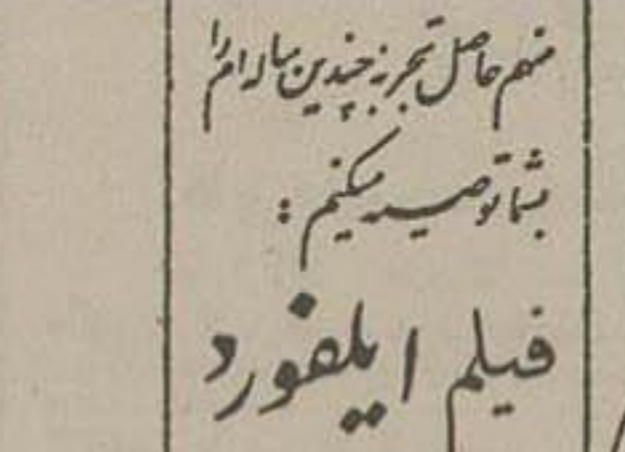 منهم حاصل تجربه چندین ساله‌ام را
بشما توصیه میکنم :
فیلم ایلفورد